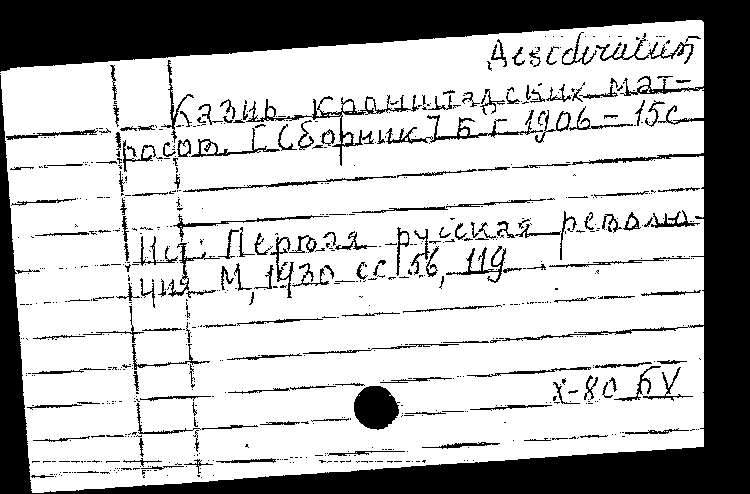 Desideratum
Казнь кронштадских мат-
росов. [Сборник] Б г 1906 - 15с
Ист: Первая русская револю-
ция М, 1930 сс 56, 119
X-80 БУ